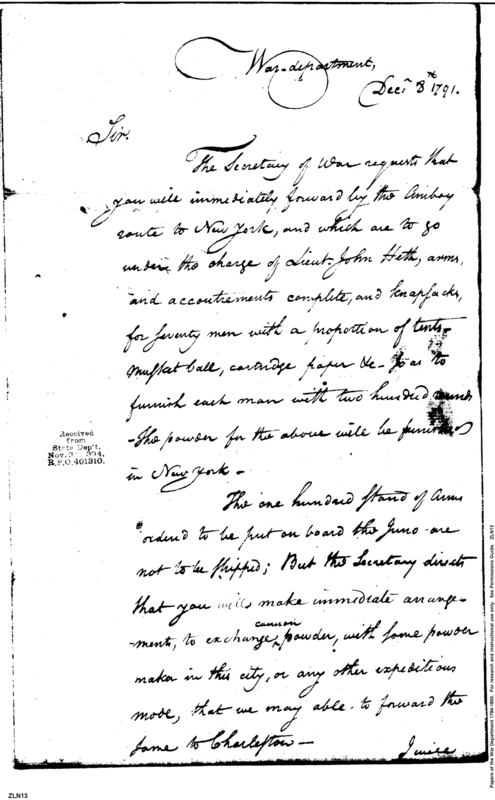 War-department,
Decr. 8th 1791.
Sir.
The Secretary of War requests that
you will immediately forward by the Amboy
route to New York, and which are to go
under the charge of Lieut. John Heth, arms,
and accoutrements complete, and knapsacks,
for seventy men with a proportion of tents-
musket ball, cartridge paper &c- so as to
furnish each man with two hundred rounds
-The powder for the above will be
in New York-
The one hundred stand of Arms
ordered to be put on board the Juno-are
not to be shipped; But the Secretary directs
that you will make immediate arrange-
cannon
-ments, to exchange powder, with some powder
maker in this city, or any other expeditious
mode, that we may able-to forward the
same to Charleston-
I wise
Received
from
State Dep't.
Nov. 394.
R.P.O.401310.
ZLN13
Papers of the War Department 1784-1800. For research and instructional use only. See Permissions Guide. ZLN13